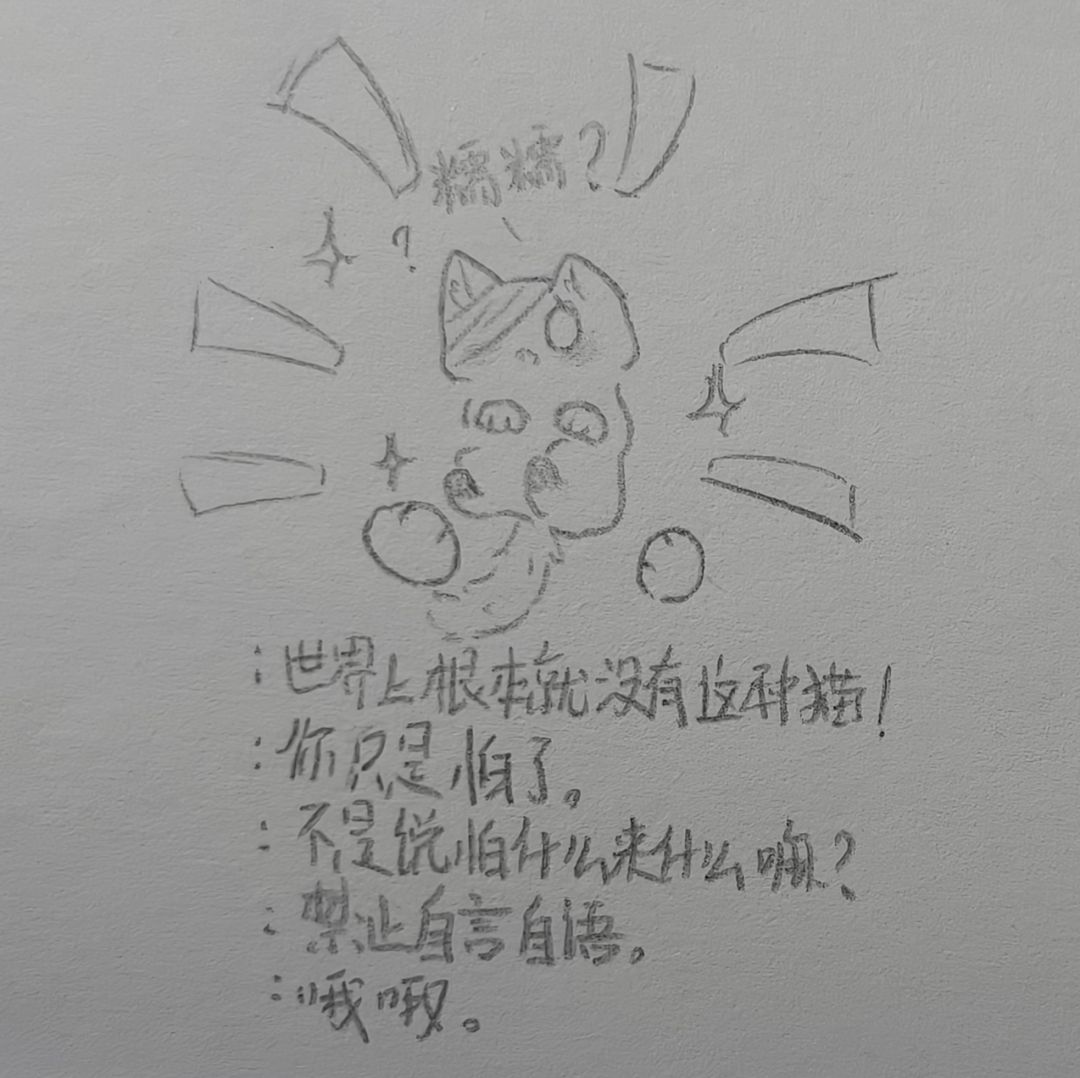 糯糯？
？
：世界上根本就没有这种猫！
：你只是怕了。
：不是说怕什么来什么嘛？
：禁止自言自语。
：哦哦。